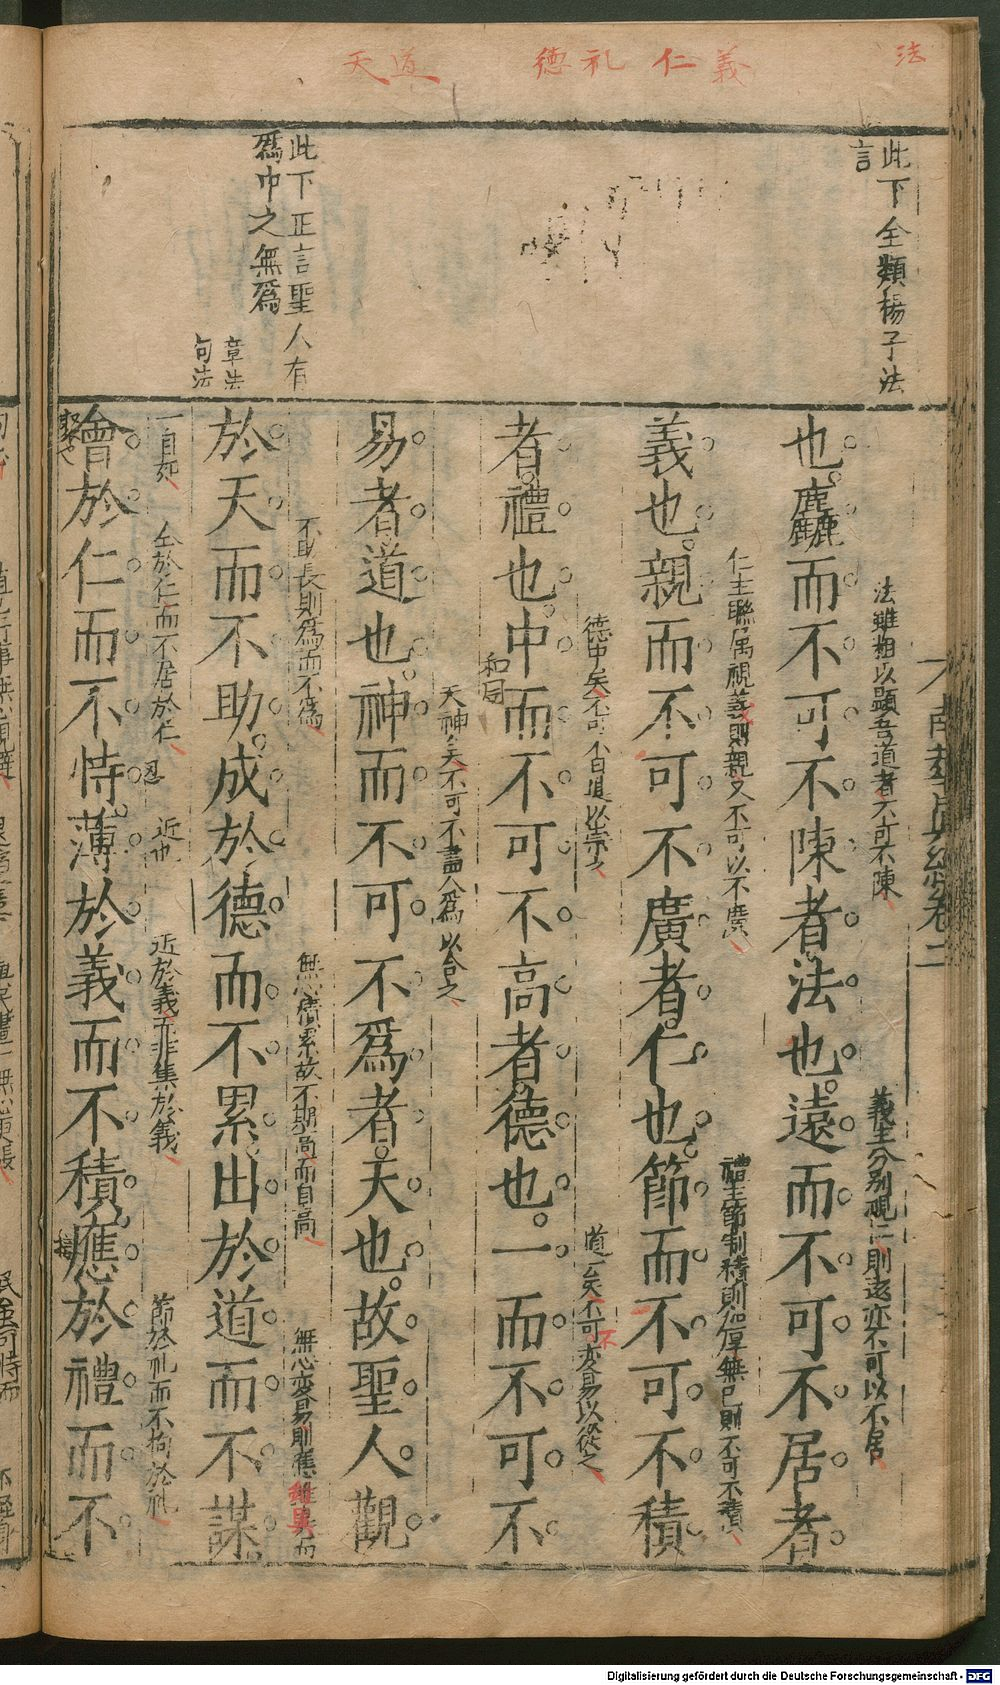 法
義
仁
礼
德
道
天
此下全類楊子法
言
此下正言聖人有
爲中之無爲
章法
句法
卷二
法雖粗以顯吾道者不可不陳
義主分別視仁則遠亦不可以不居
也麤而不可不陳者法也遠而不可不居者
仁主聯属視義則親又不可以不廣
禮主節制積則加厚無已則不可不積
義也親而不可不廣者仁也節而不可不積
德中矣不可不自進以崇之
道一矣不可不变易以從之
者禮也中而不可不高者德也一而不可不
和同
天神矣不可不盡人爲以合之
易者道也神而不可不爲者天也故聖人觀
不助長則爲而不爲
無心積累故不期高而自高
無心变易則應雖異而
於天而不助成於德而不累出於道而不謀
一自死
全於仁而不居於仁
近也
近於義而非集於義
節於礼而不拘於礼
會於仁而不恃薄於義而不積應於禮而不
聚也
恩
接
Digitalisierung gefördert durch die Deutsche Forschungsgemeinschaft - DFG